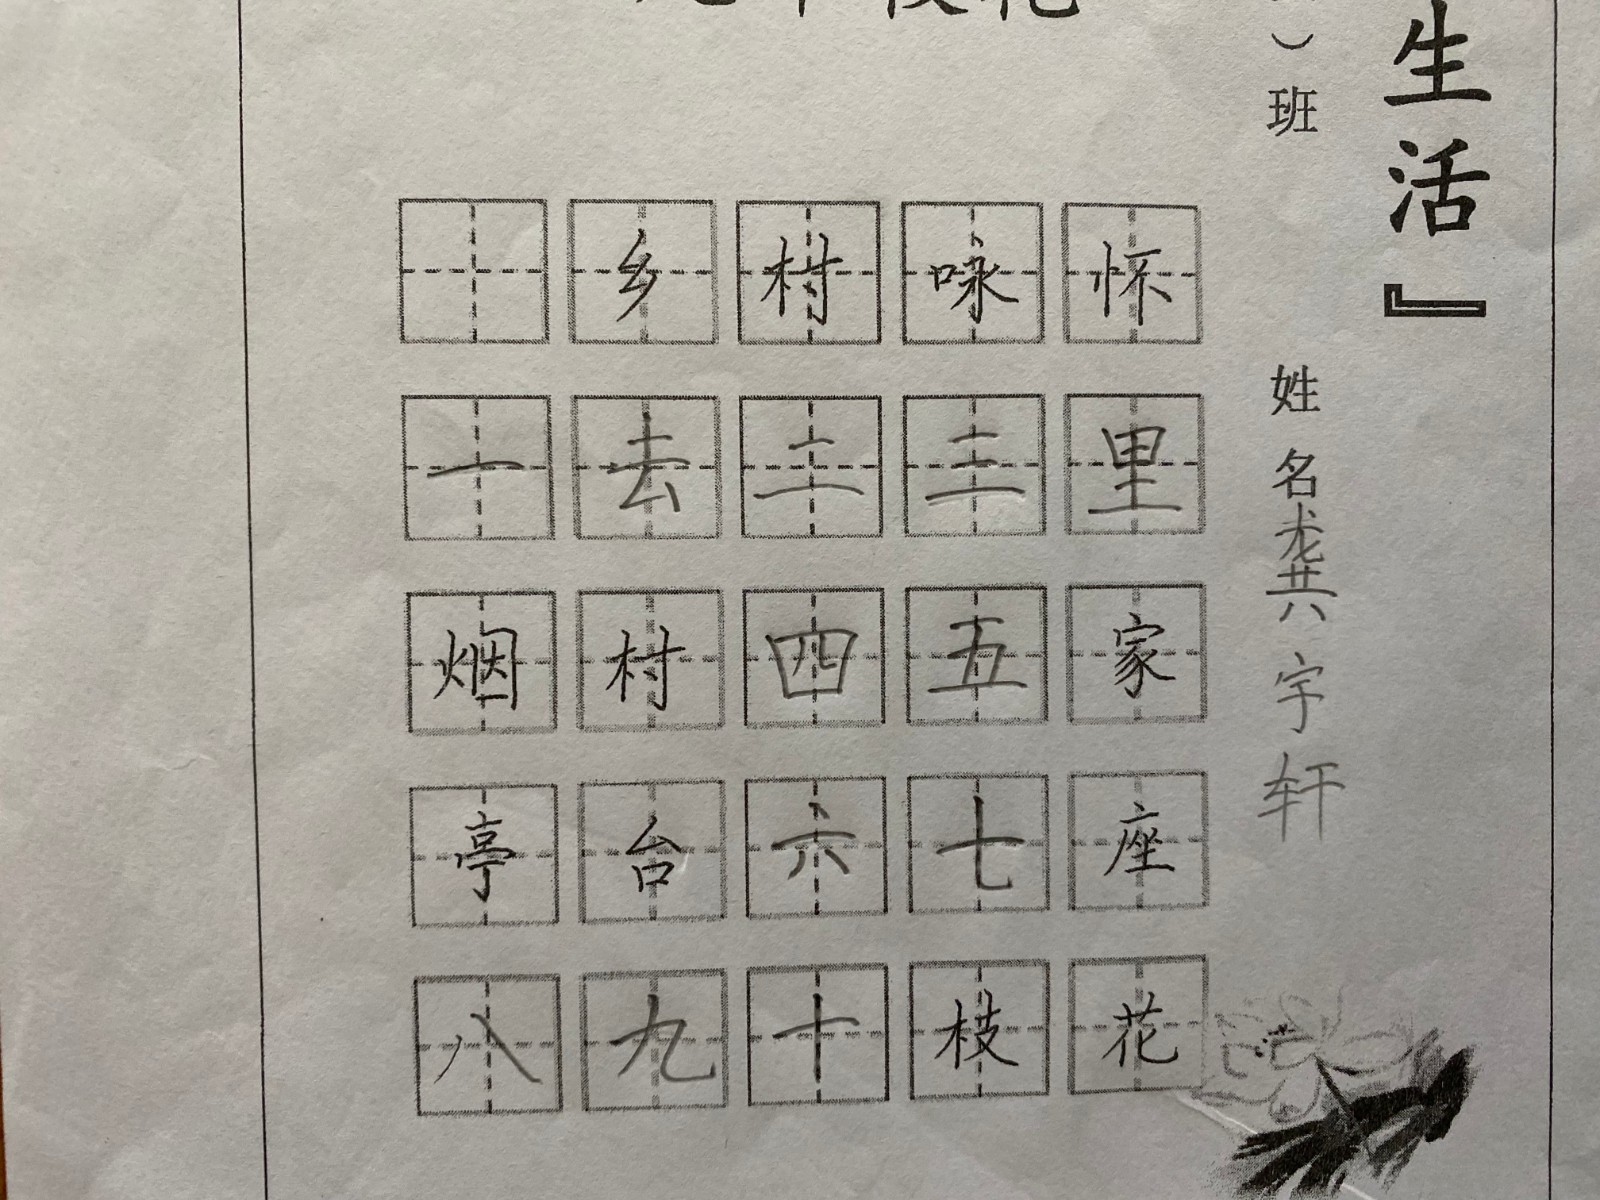 生活』
）班 姓名龚宇轩
乡村咏怀
一去二三里
烟村四五家
亭台六七座
八九十枝花